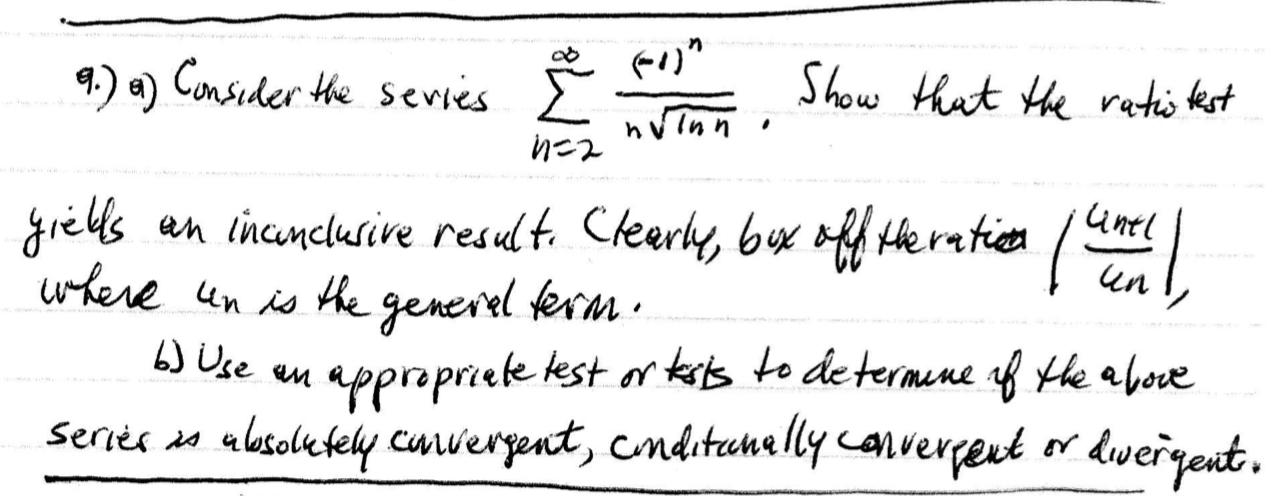 9.) a) Consider the series ∑_{n=2}^{∞} (-1)^n / (n√(ln n)). Show that the ratio test
yields an inconclusive result. Clearly, box off the ratio |u_{n+1} / u_n|,
where u_n is the general term.
b) Use an appropriate test or tests to determine if the above
series is absolutely convergent, conditionally convergent or divergent.